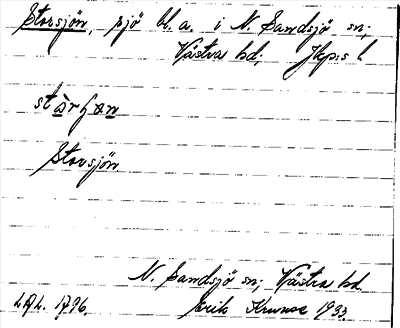 Storsjön, sjö bl. a. i N. Sandsjö sn;
Västra hd; Jkps l
Storsjön
N. Sandsjö sn; Västra hd.
L.A.L. 1796. Erik 1933.